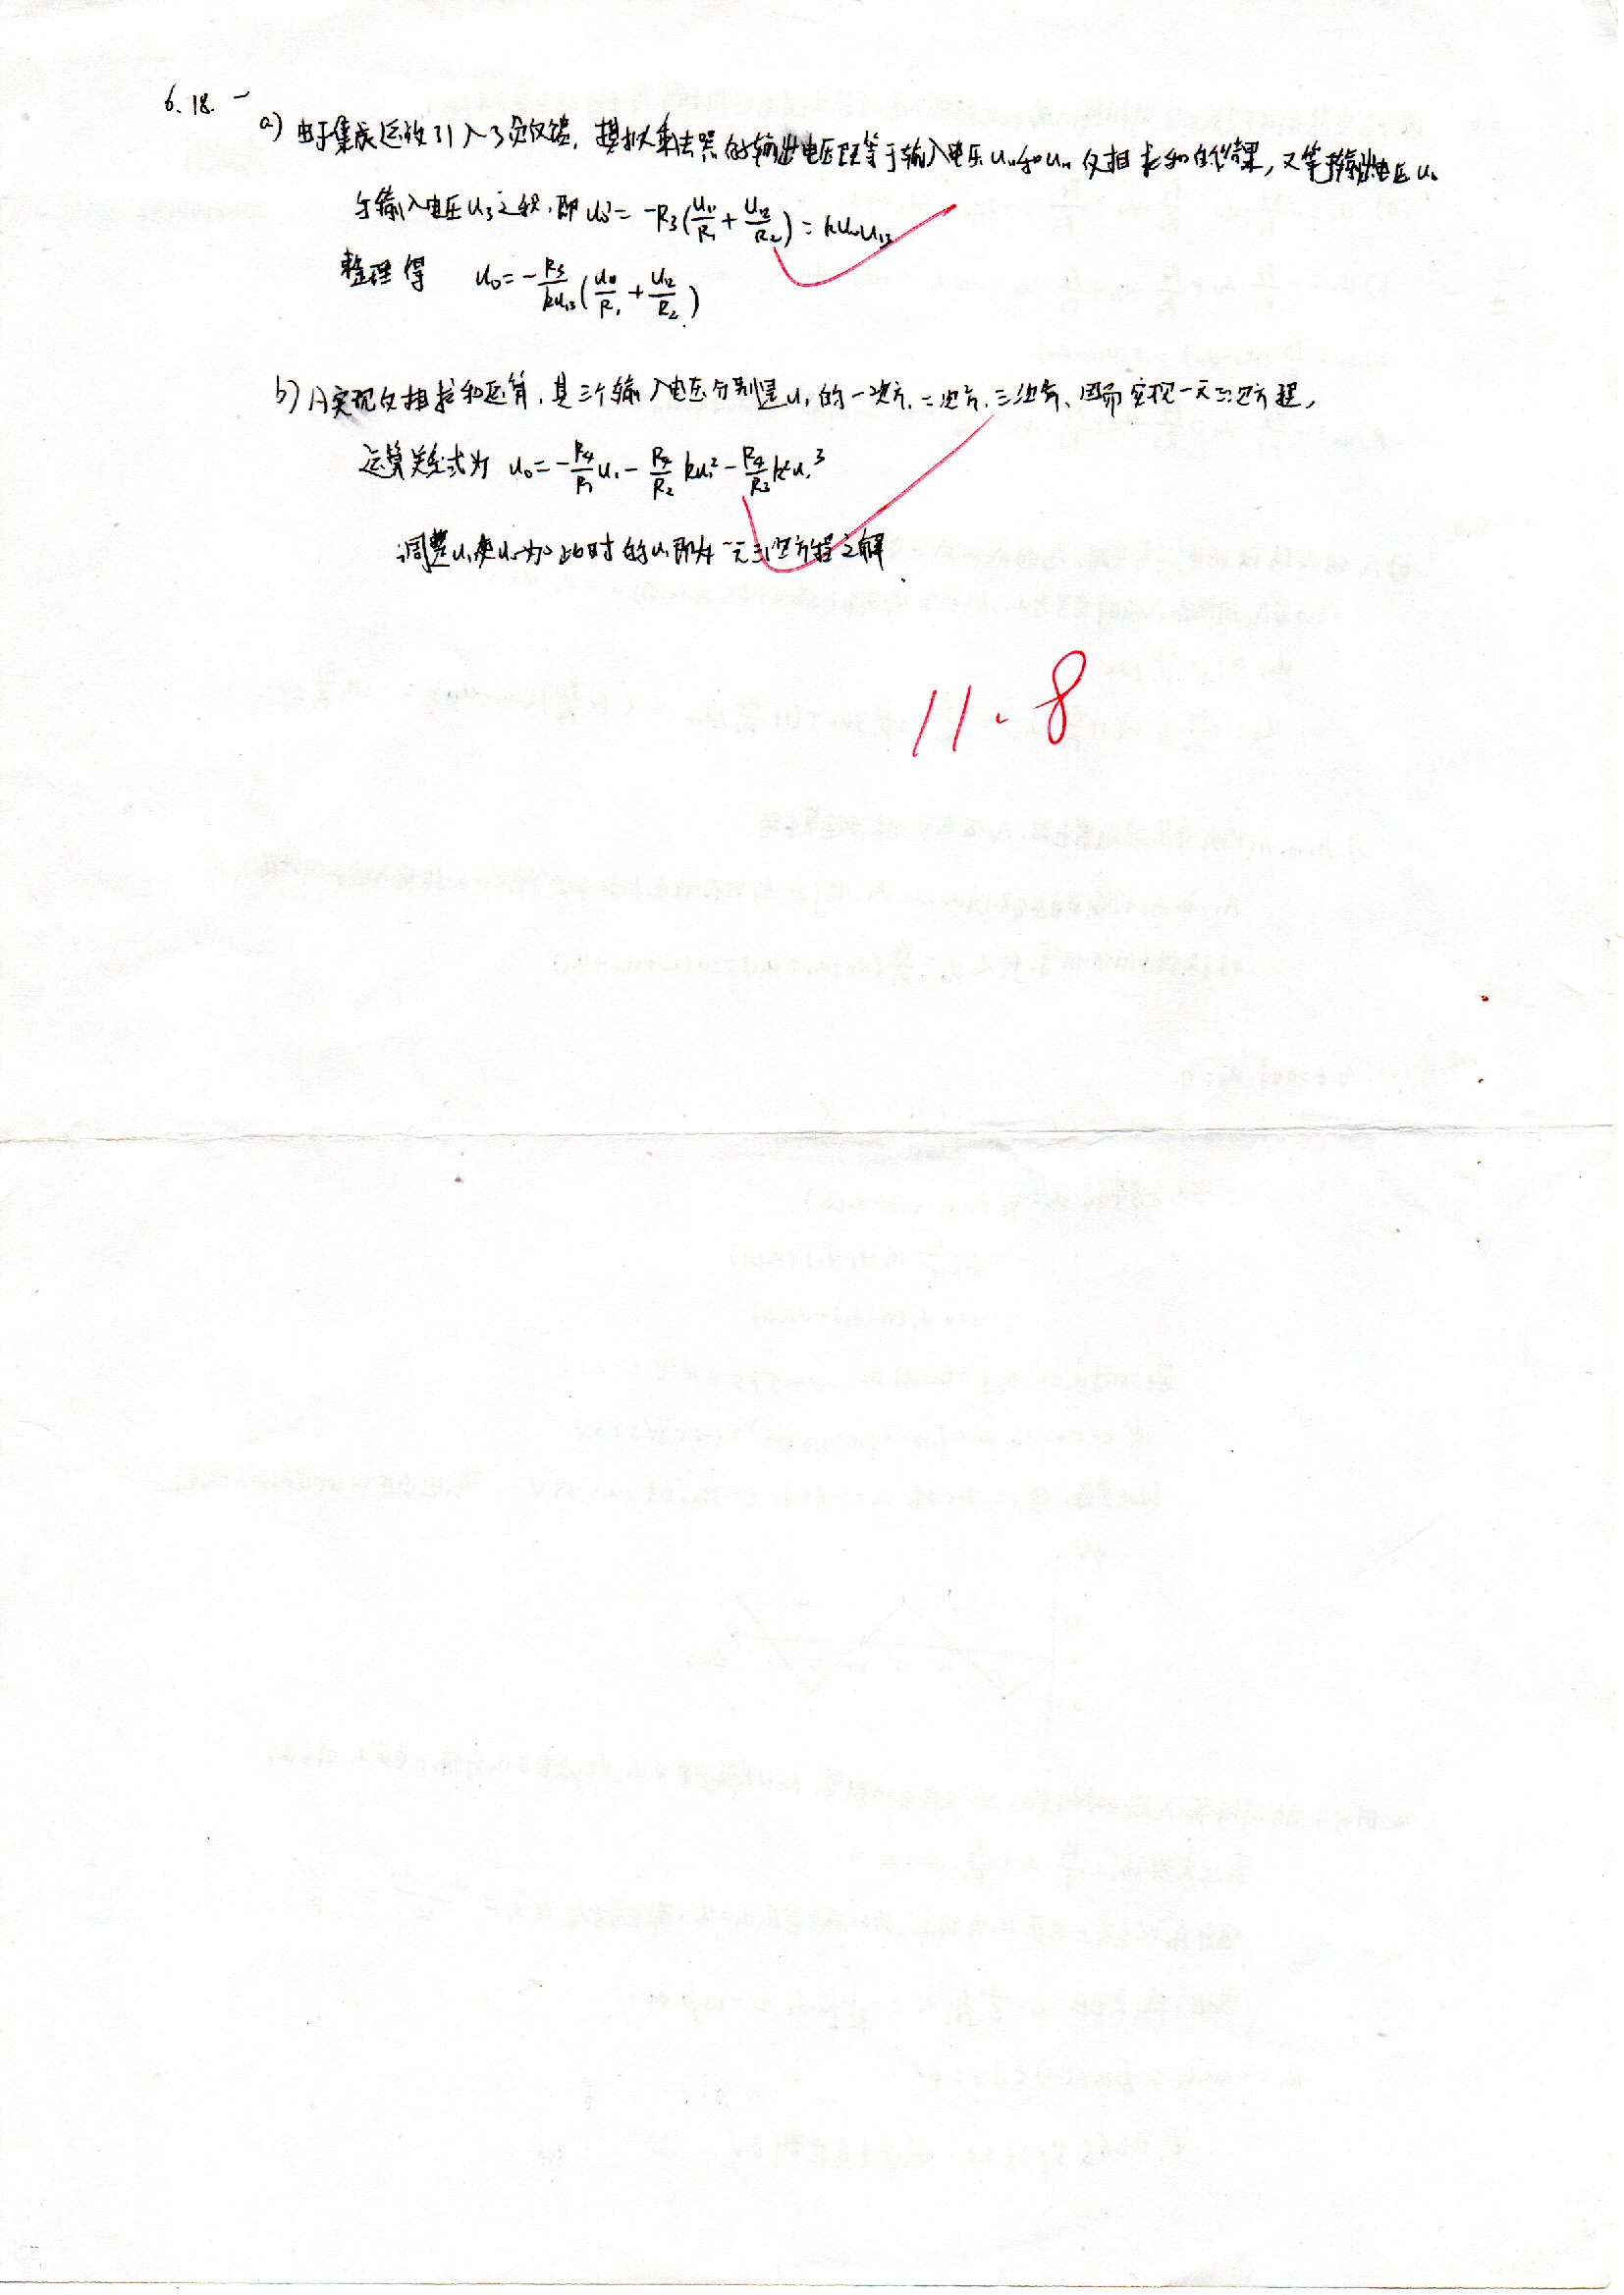 6.18.
a) 由于集成运放引入了负反馈，模拟乘法器的输出电压既等于输入电压u₁₁和u₁₂反相求和的结果，又等于输出电压u₀
与输入电压u₃之积，即 u₀' = -R₃(u₁₁/R₁ + u₁₂/R₂) = ku₀u₁₃
整理得 u₀ = -R₃/(ku₁₃) (u₁₁/R₁ + u₁₂/R₂)
b) A实现反相求和运算，其三个输入电压分别是u₁的一次方、二次方、三次方、因而实现一元三次方程，
运算关系式为 u₀ = -R₄/R₁ u₁ - R₄/R₂ ku₁² - R₄/R₃ k²u₁³
调整u₁使u₀为0 此时的u₁即为一元三次方程之解.
11.8